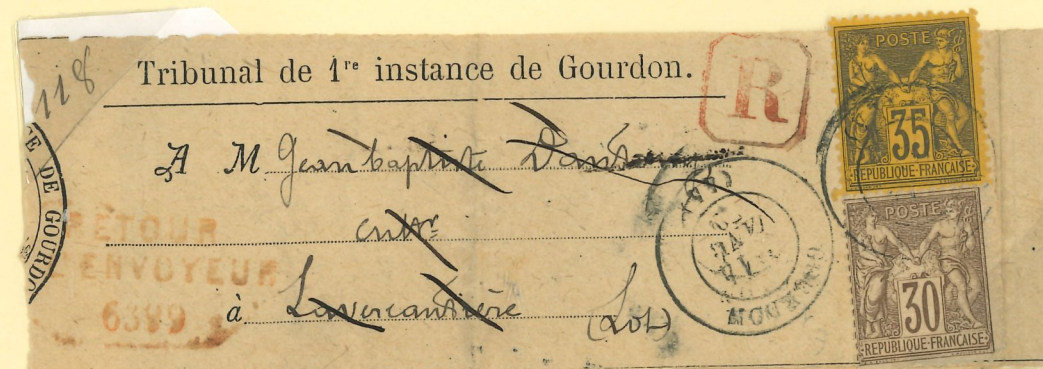 118
Tribunal de 1re instance de Gourdon.
R
A M Jean baptiste
cultr
à Lavercantière (Lot)
DE GOURDO
RETOUR
L'ENVOYEUR
6399
GOURDON
(LOT)
JANV
POSTE
35
REPUBLIQUE FRANÇAISE
POSTE
30
REPUBLIQUE FRANÇAISE